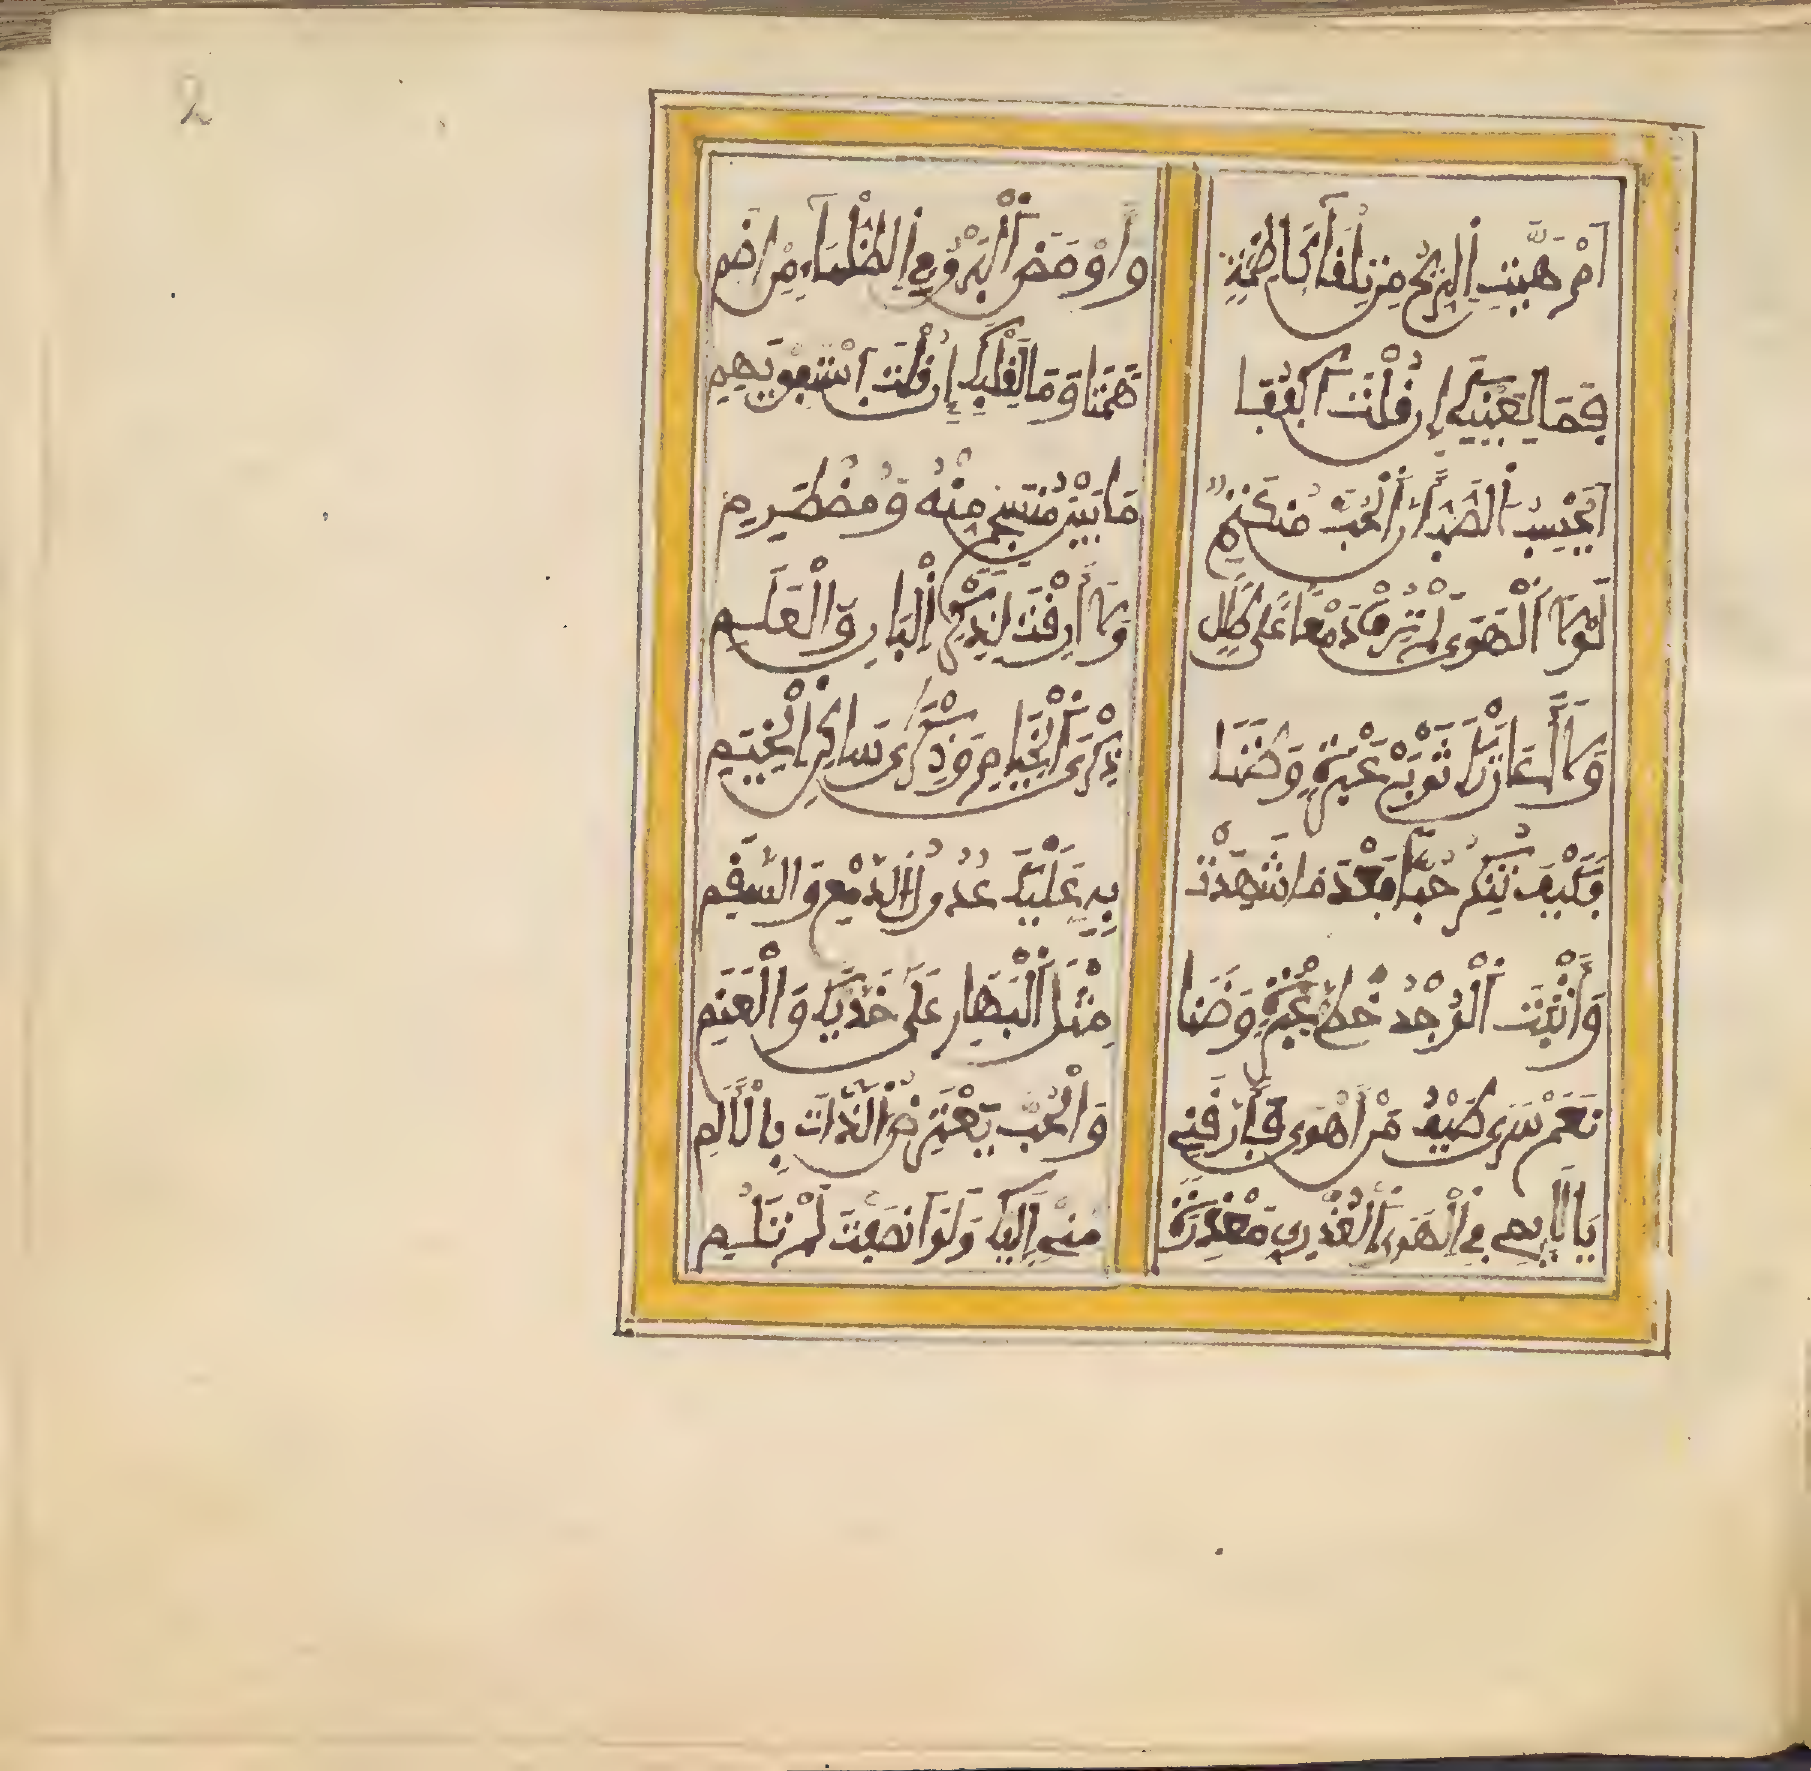 2
اَمْ هَبَّتِ اِ۬لرِّيحُ مِن تِلْقَآءِ كَاظِمَةٍ وَأَوْمَضَ اَ۬لْبَرْقُ فِي اِ۬لظَّلْمَآءِ مِنْ اِضَمِ
فَمَا لِعَيْنَيْكَ إِن قُلْتَ اَكْفُفَا هَمَتَا وَمَا لِقَلْبِكَ إِن قُلْتَ اَسْتَفِقْ يَهِمِ
اَيَحْسِبُ اَ۬لصَّبُّ أَنَّ اَ۬لْحُبَّ مُنكَتِمٌ مَا بَيْنَ مُنسَجِمٍ مِنْهُ وَمُضْطَرِمِ
لَوْلَا اَ۬لْهَوَى لَمْ تُرِقْ دَمْعاً عَلَى طَلَلٍ وَلَا أَرِقْتَ لِذِكْرِ اِ۬لْبَانِ وَالْعَلَمِ
وَلَا أَعَارَتْكَ ثَوْبَيْ عَبْرَةٍ وَضَنَا ذِكْرَى اَ۬لْخِيَامِ وَذِكْرَى سَاكِنِ اِ۬لْخِيَمِ
فَكَيْفَ تُنكِرُ حُبّاً بَعْدَ مَا شَهِدَتْ بِهِ عَلَيْكَ عُدُولُ الدَّمْعِ وَالسَّقَمِ
وَأَثْبَتَ اَ۬لْوَجْدُ خَطَّيْ عَبْرَةٍ وَضَنَا مِثْلَ اَ۬لْبَهَارِ عَلَى خَدَّيْكَ وَالْعَنَمِ
نَعَمْ سَرَى طَيْفُ مَنْ أَهْوَى فَأَرَّقَنِي وَالْحُبُّ يَعْتَرِضُ اَ۬للَّذَّاتِ بِالْأَلَمِ
يَا لَائِمِي فِي اِ۬لْهَوَى اَ۬لْعُذْرِيِّ مَعْذِرَةً مِنِّي إِلَيْكَ وَلَوَ اَنصَفْتَ لَمْ تَلُمِ